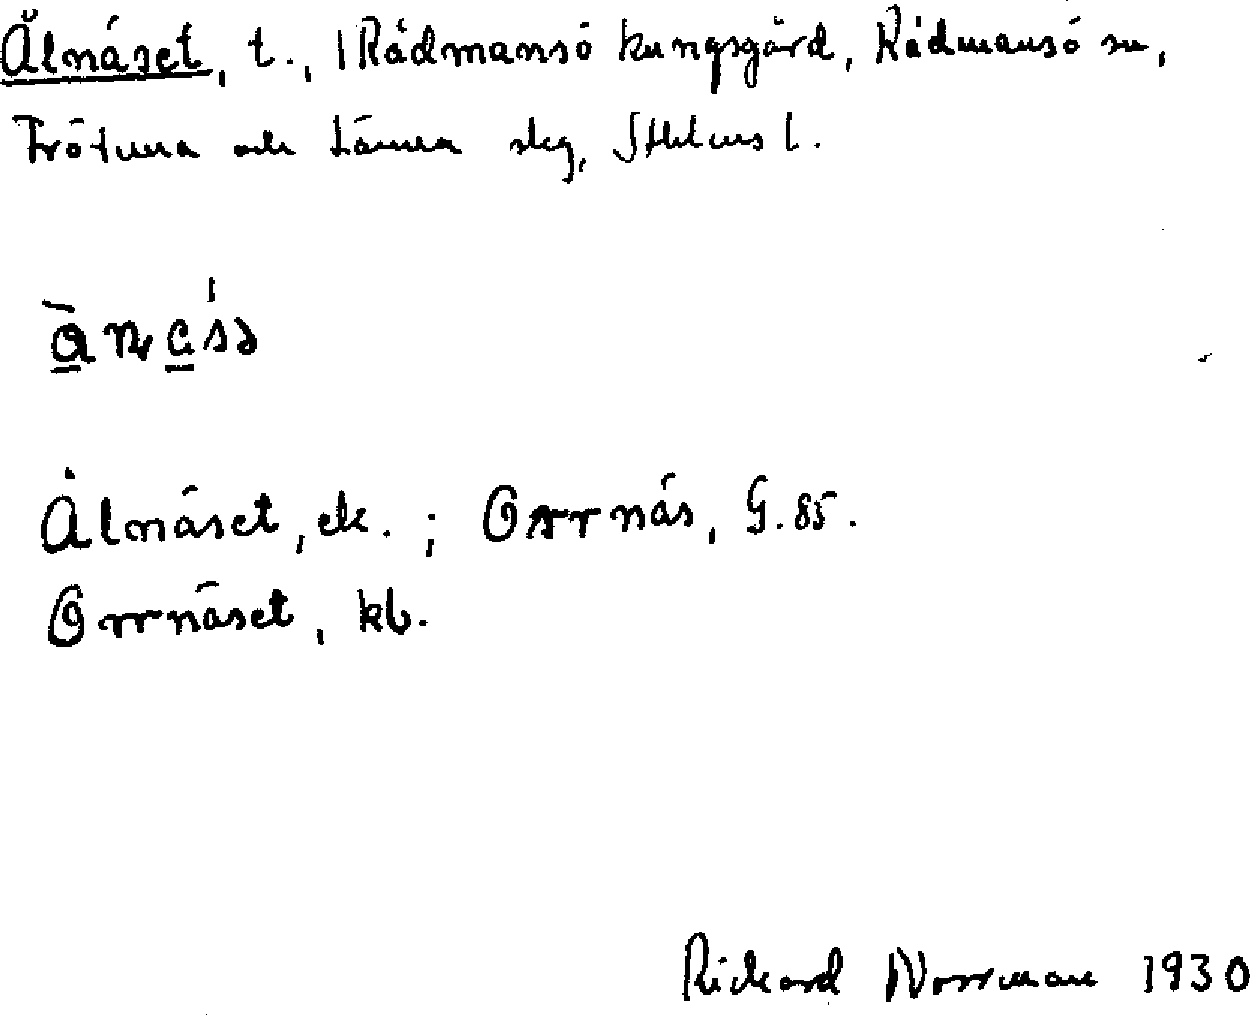 Ålnäset, t., | Rådmansö kungsgård, Rådmansö sn,
Frötuna och Länna slg, Sthlms l.
Ålnäset, ek. ; Orrnäs, G. 85.
Orrnäset, kb.
Rickard Norrman 1930